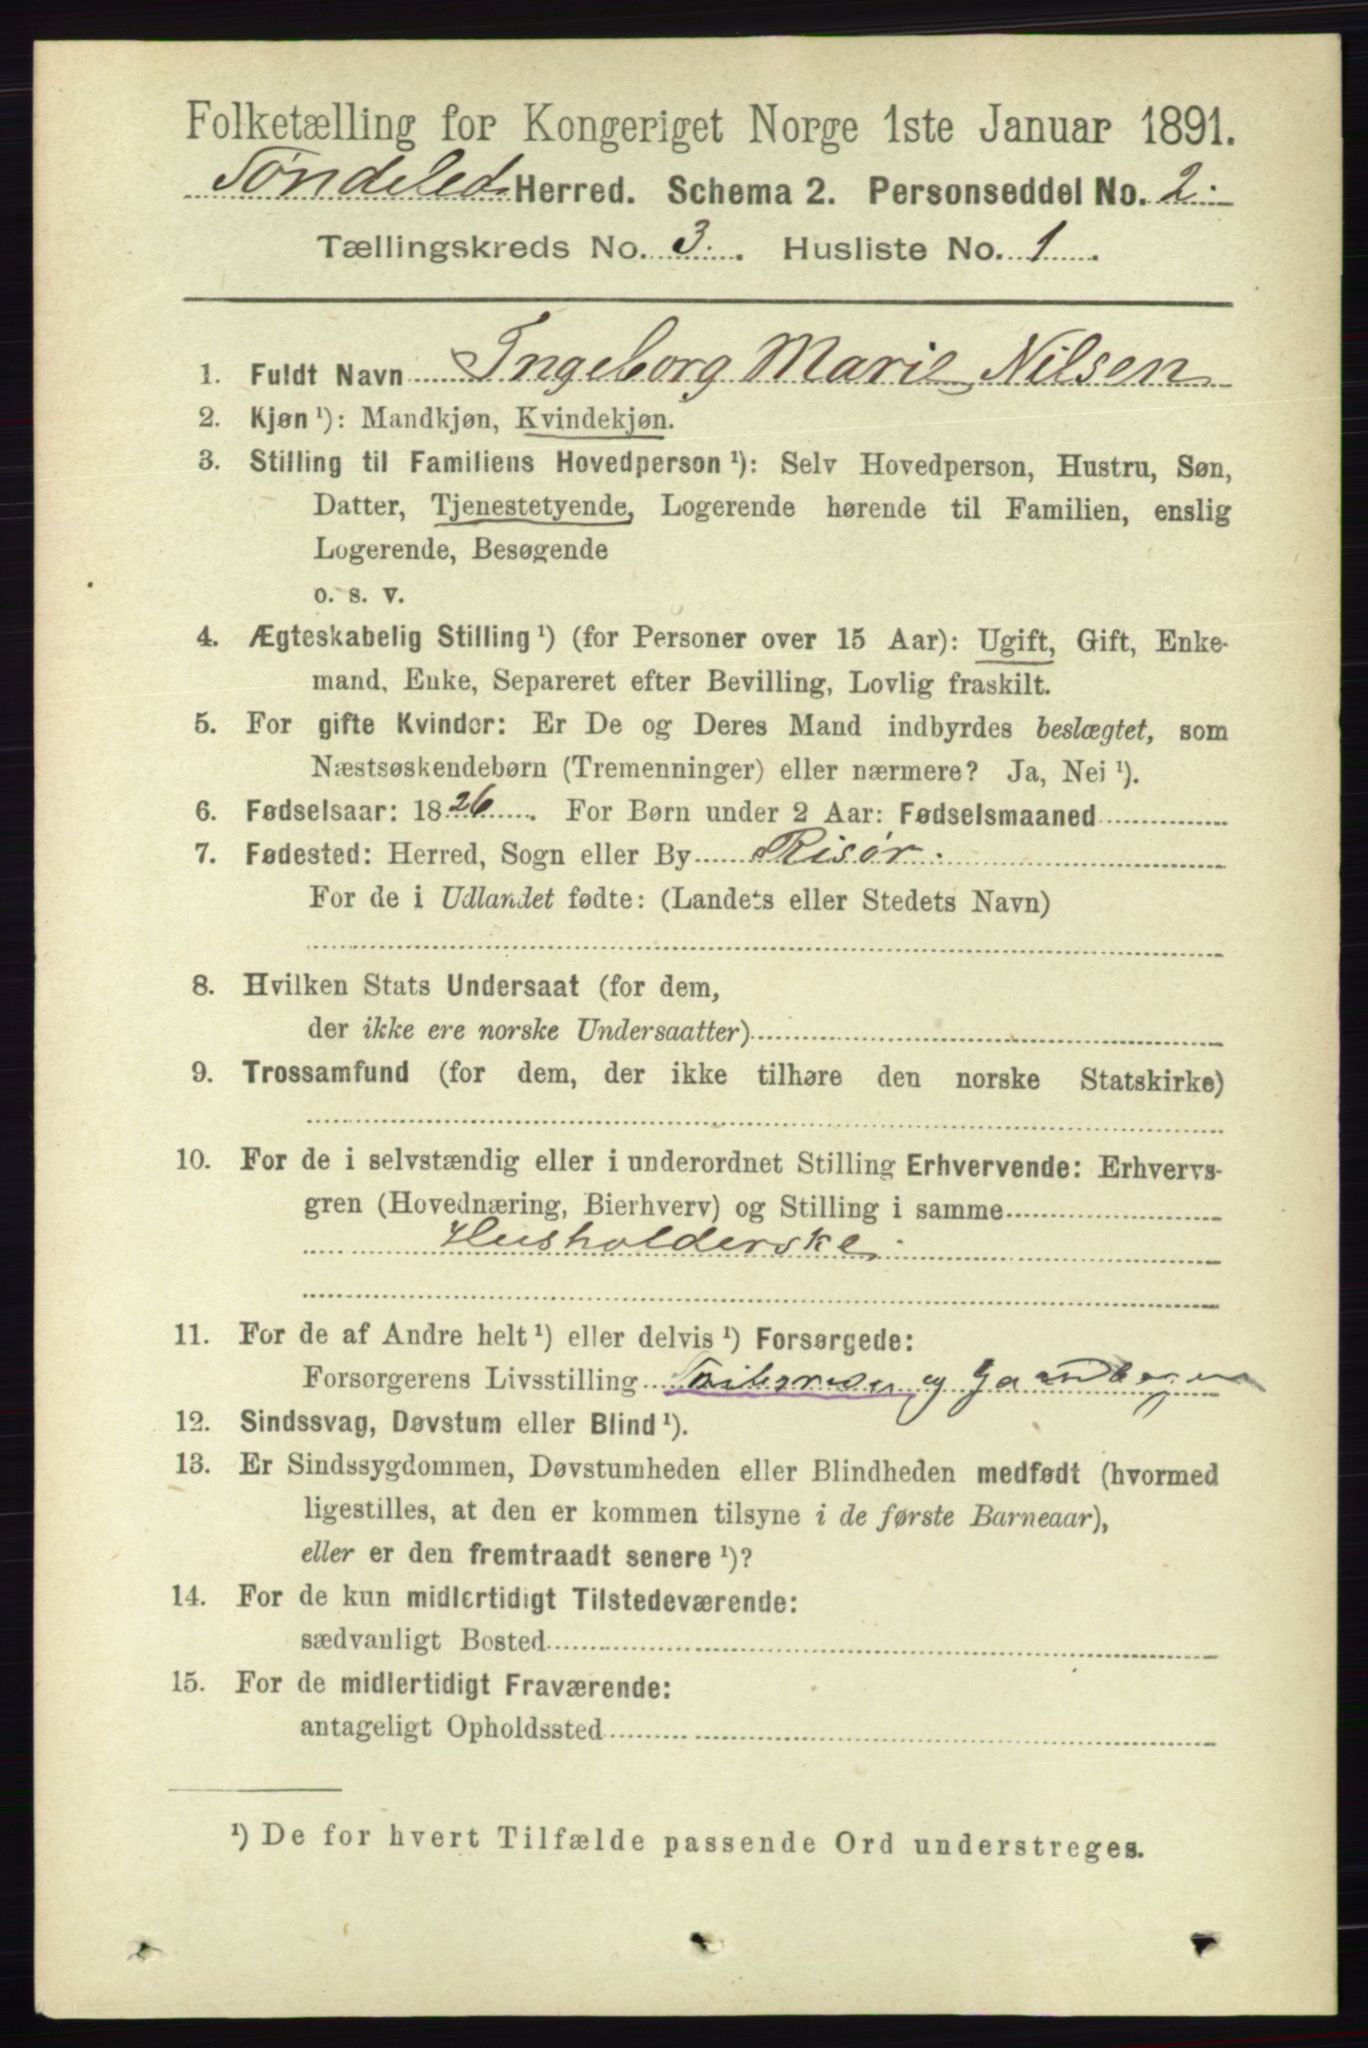 Folketælling for Kongeriget Norge 1ste Januar 1891.
Søndeled Herred. Schema 2. Personseddel No. 2.
Tællingskreds No. 3. Husliste No. 1.
1. Fuldt Navn Ingeborg Marie Nilsen
2. Kjøn ¹): Mandkjøn, Kvindekjøn.
3. Stilling til Familiens Hovedperson ¹): Selv Hovedperson, Hustru, Søn,
Datter, Tjenestetyende, Logerende hørende til Familien, enslig
Logerende, Besøgende
o. s. v.
4. Ægteskabelig Stilling ¹) (for Personer over 15 Aar): Ugift, Gift, Enke-
mand, Enke, Separeret efter Bevilling, Lovlig fraskilt.
5. For gifte Kvinder: Er De og Deres Mand indbyrdes beslægtet, som
Næstsøskendebørn (Tremenninger) eller nærmere? Ja, Nei ¹).
6. Fødselsaar: 1826. For Børn under 2 Aar: Fødselsmaaned
7. Fødested: Herred, Sogn eller By Risør.
For de i Udlandet fødte: (Landets eller Stedets Navn)
8. Hvilken Stats Undersaat (for dem,
der ikke ere norske Undersaatter)
9. Trossamfund (for dem, der ikke tilhøre den norske Statskirke)
10. For de i selvstændig eller i underordnet Stilling Erhvervende: Erhvervs-
gren (Hovednæring, Bierhverv) og Stilling i samme
Husholderske
11. For de af Andre helt ¹) eller delvis ¹) Forsørgede:
Forsørgerens Livsstilling
12. Sindssvag, Døvstum eller Blind ¹).
13. Er Sindssygdommen, Døvstumheden eller Blindheden medfødt (hvormed
ligestilles, at den er kommen tilsyne i de første Barneaar),
eller er den fremtraadt senere ¹)?
14. For de kun midlertidigt Tilstedeværende:
sædvanligt Bosted
15. For de midlertidigt Fraværende:
antageligt Opholdssted
¹) De for hvert Tilfælde passende Ord understreges.